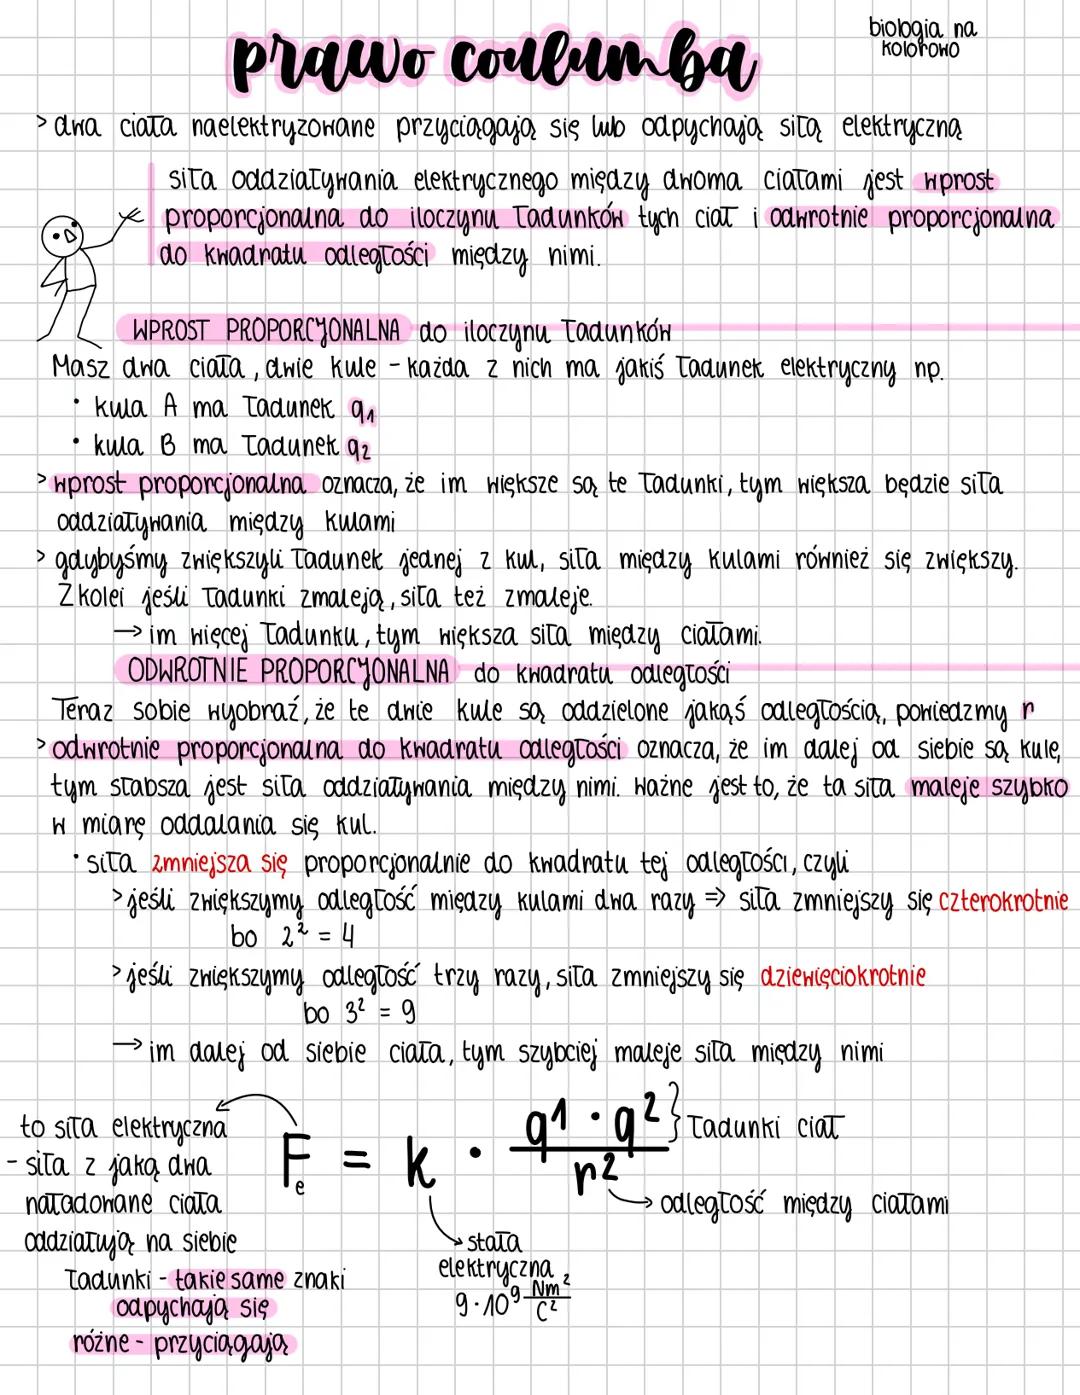 prawo coulumba
biologia na
kolorowo
> dwa ciała naelektryzowane przyciągają się lub odpychają siłą elektryczną
siła oddziaływania elektrycznego między dwoma ciałami jest wprost
proporcjonalna do iloczynu ładunków tych ciał i odwrotnie proporcjonalna
do kwadratu odległości między nimi.
WPROST PROPORCJONALNA do iloczynu ładunków
Masz dwa ciała, dwie kule - każda z nich ma jakiś ładunek elektryczny np.
• kula A ma ładunek q₁
• kula B ma ładunek q₂
> wprost proporcjonalna oznacza, że im większe są te ładunki, tym większa będzie siła
oddziaływania między kulami
> gdybyśmy zwiększyli ładunek jednej z kul, siła między kulami również się zwiększy.
Z kolei jeśli ładunki zmaleją, siła też zmaleje.
→ im więcej ładunku, tym większa siła między ciałami.
ODWROTNIE PROPORCJONALNA do kwadratu odległości
Teraz sobie wyobraź, że te dwie kule są oddzielone jakąś odległością, powiedzmy r
> odwrotnie proporcjonalna do kwadratu odległości oznacza, że im dalej od siebie są kule,
tym słabsza jest siła oddziaływania między nimi. Ważne jest to, że ta siła maleje szybko
w miarę oddalania się kul.
• siła zmniejsza się proporcjonalnie do kwadratu tej odległości, czyli
> jeśli zwiększymy odległość między kulami dwa razy ⇒ siła zmniejszy się czterokrotnie
bo 2² = 4
> jeśli zwiększymy odległość trzy razy, siła zmniejszy się dziewięciokrotnie
bo 3² = 9
→ im dalej od siebie ciała, tym szybciej maleje siła między nimi
to siła elektryczna
- siła z jaką dwa
naładowane ciała
oddziałują na siebie
Fe = k · q1 · q2 / r² } ładunki ciał
→ odległość między ciałami
stała
elektryczna
9·10⁹ Nm²/C²
ładunki - takie same znaki
odpychają się
różne - przyciągają